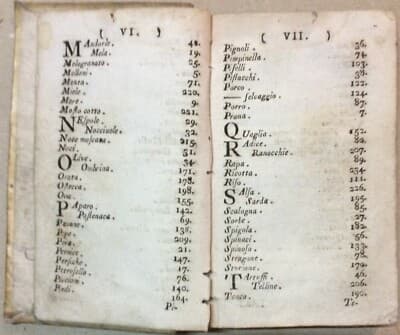 ( VI. )
MAndorle. 42.
Mela. 19.
Melogranato. 25.
Melloni. 5.
Menta. 71.
Miele. 220.
More. 9.
Mosto cotto. 221.
NEspole. 29.
Nocciuole. 32.
Noce moscata. 215.
Noci. 51.
OLive. 34.
Ombrina. 171.
Orata. 178.
Ostreca. 198.
Ova. 155.
PAparo. 142.
Pastenaca. 69.
Pavone. 138.
Pepe. 209.
Pera. 21.
Pernice. 147.
Persiche. 17.
Petrosello. 76.
Piccioni. 140.
Piedi. 164.
Pi-
( VII. )
Pignoli. 36.
Pimpinella. 74.
Piselli. 103.
Pistacchi. 38.
Porco. 122.
—— selvaggio. 124.
Porro. 87.
Pruna. 7.
QUaglia. 152.
RAdice. 82.
Ranocchie. 207.
Rapa. 89.
Ricotta. 234.
Riso. 111.
SAlsa. 226.
Sarda. 195.
Scalogna. 85.
Sorbe. 27.
Spigola. 182.
Spinaci. 56.
Spinosa. 133.
Stragone. 78.
Storione. 172.
TArtuffi. 46.
Telline. 206.
190.
Te-